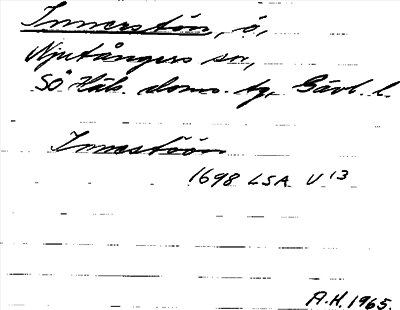 Innerstön, ö,
Njutångers sn,
SÖ Häls. doms. tg, Gävl. l.
Innestöön
1698 LSA U 13
A.H. 1965.